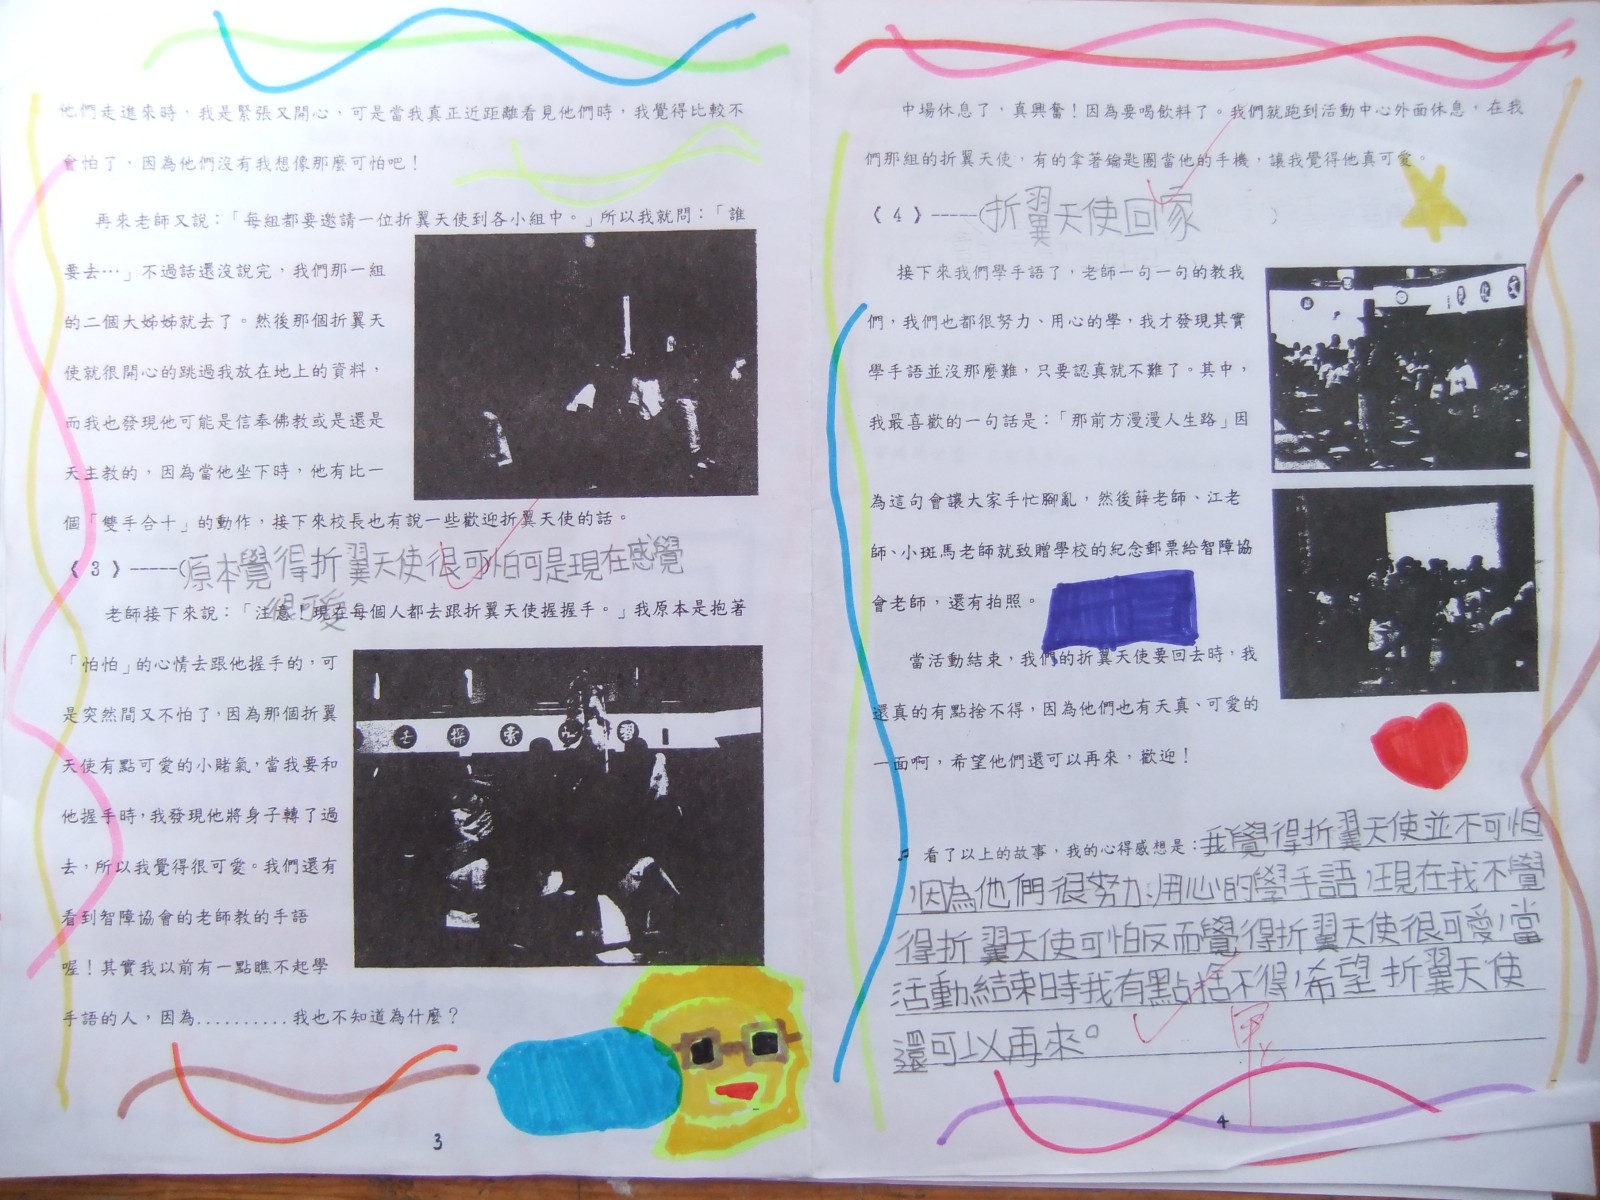 他們走進來時，我是緊張又開心，可是當我真正近距離看見他們時，我覺得比較不
會怕了，因為他們沒有我想像那麼可怕吧！
再來老師又說：「每組都要邀請一位折翼天使到各小組中。」所以我就問：「誰
要去…」不過話還沒說完，我們那一組
的二個大姊姊就去了。然後那個折翼天
使就很開心的跳過我放在地上的資料，
而我也發現他可能是信奉佛教或是還是
天主教的，因為當他坐下時，他有比一
個「雙手合十」的動作，接下來校長也有說一些歡迎折翼天使的話。
《 3 》-----(原本覺得折翼天使很可怕可是現在感覺
很可愛
老師接下來說：「注意！現在每個人都去跟折翼天使握握手。」我原本是抱著
「怕怕」的心情去跟他握手的，可
是突然間又不怕了，因為那個折翼
天使有點可愛的小賭氣，當我要和
他握手時，我發現他將身子轉了過
去，所以我覺得很可愛。我們還有
看到智障協會的老師教的手語
喔！其實我以前有一點瞧不起學
手語的人，因為..........我也不知道為什麼？
3
中場休息了，真興奮！因為要喝飲料了。我們就跑到活動中心外面休息，在我
們那組的折翼天使，有的拿著鑰匙圈當他的手機，讓我覺得他真可愛。
《 4 》-----(折翼天使回家)
接下來我們學手語了，老師一句一句的教我
們，我們也都很努力、用心的學，我才發現其實
學手語並沒那麼難，只要認真就不難了。其中，
我最喜歡的一句話是：「那前方漫漫人生路」因
為這句會讓大家手忙腳亂，然後薛老師、江老
師、小斑馬老師就致贈學校的紀念郵票給智障協
會老師，還有拍照。
當活動結束，我們的折翼天使要回去時，我
還真的有點捨不得，因為他們也有天真、可愛的
一面啊，希望他們還可以再來，歡迎！
♫ 看了以上的故事，我的心得感想是：我覺得折翼天使並不可怕
，因為他們很努力、用心的學手語，現在我不覺
得折翼天使可怕反而覺得折翼天使很可愛，當
活動結束時我有點捨不得，希望折翼天使
還可以再來。
4